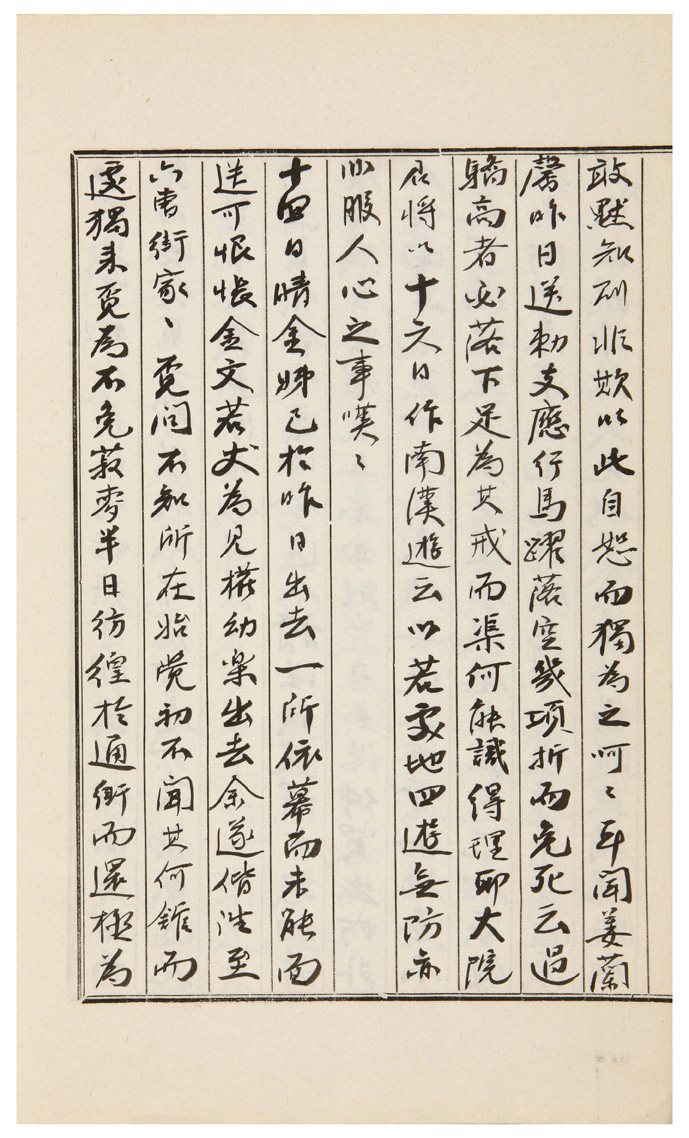 敢默知 非欺以此自恕而獨為之呵〻耳聞姜蘭
馨昨日送勅支應行馬躍落空幾項折而免死云過
驕高者必落下足為其戒而渠何能識得理耶大院
君將以十六日作南漢遊云以若處地四遊無防亦
 服人心之事嘆〻
十四日晴金姊已於昨日出去一所依幕而未能面
送可恨悵金文若丈為見 幼樂出去余遂偕 至
六曹街家〻覓問不知所在始覺初不聞其何 而
遽獨來覓為不免菽麥半日彷徨於通衢而還極為